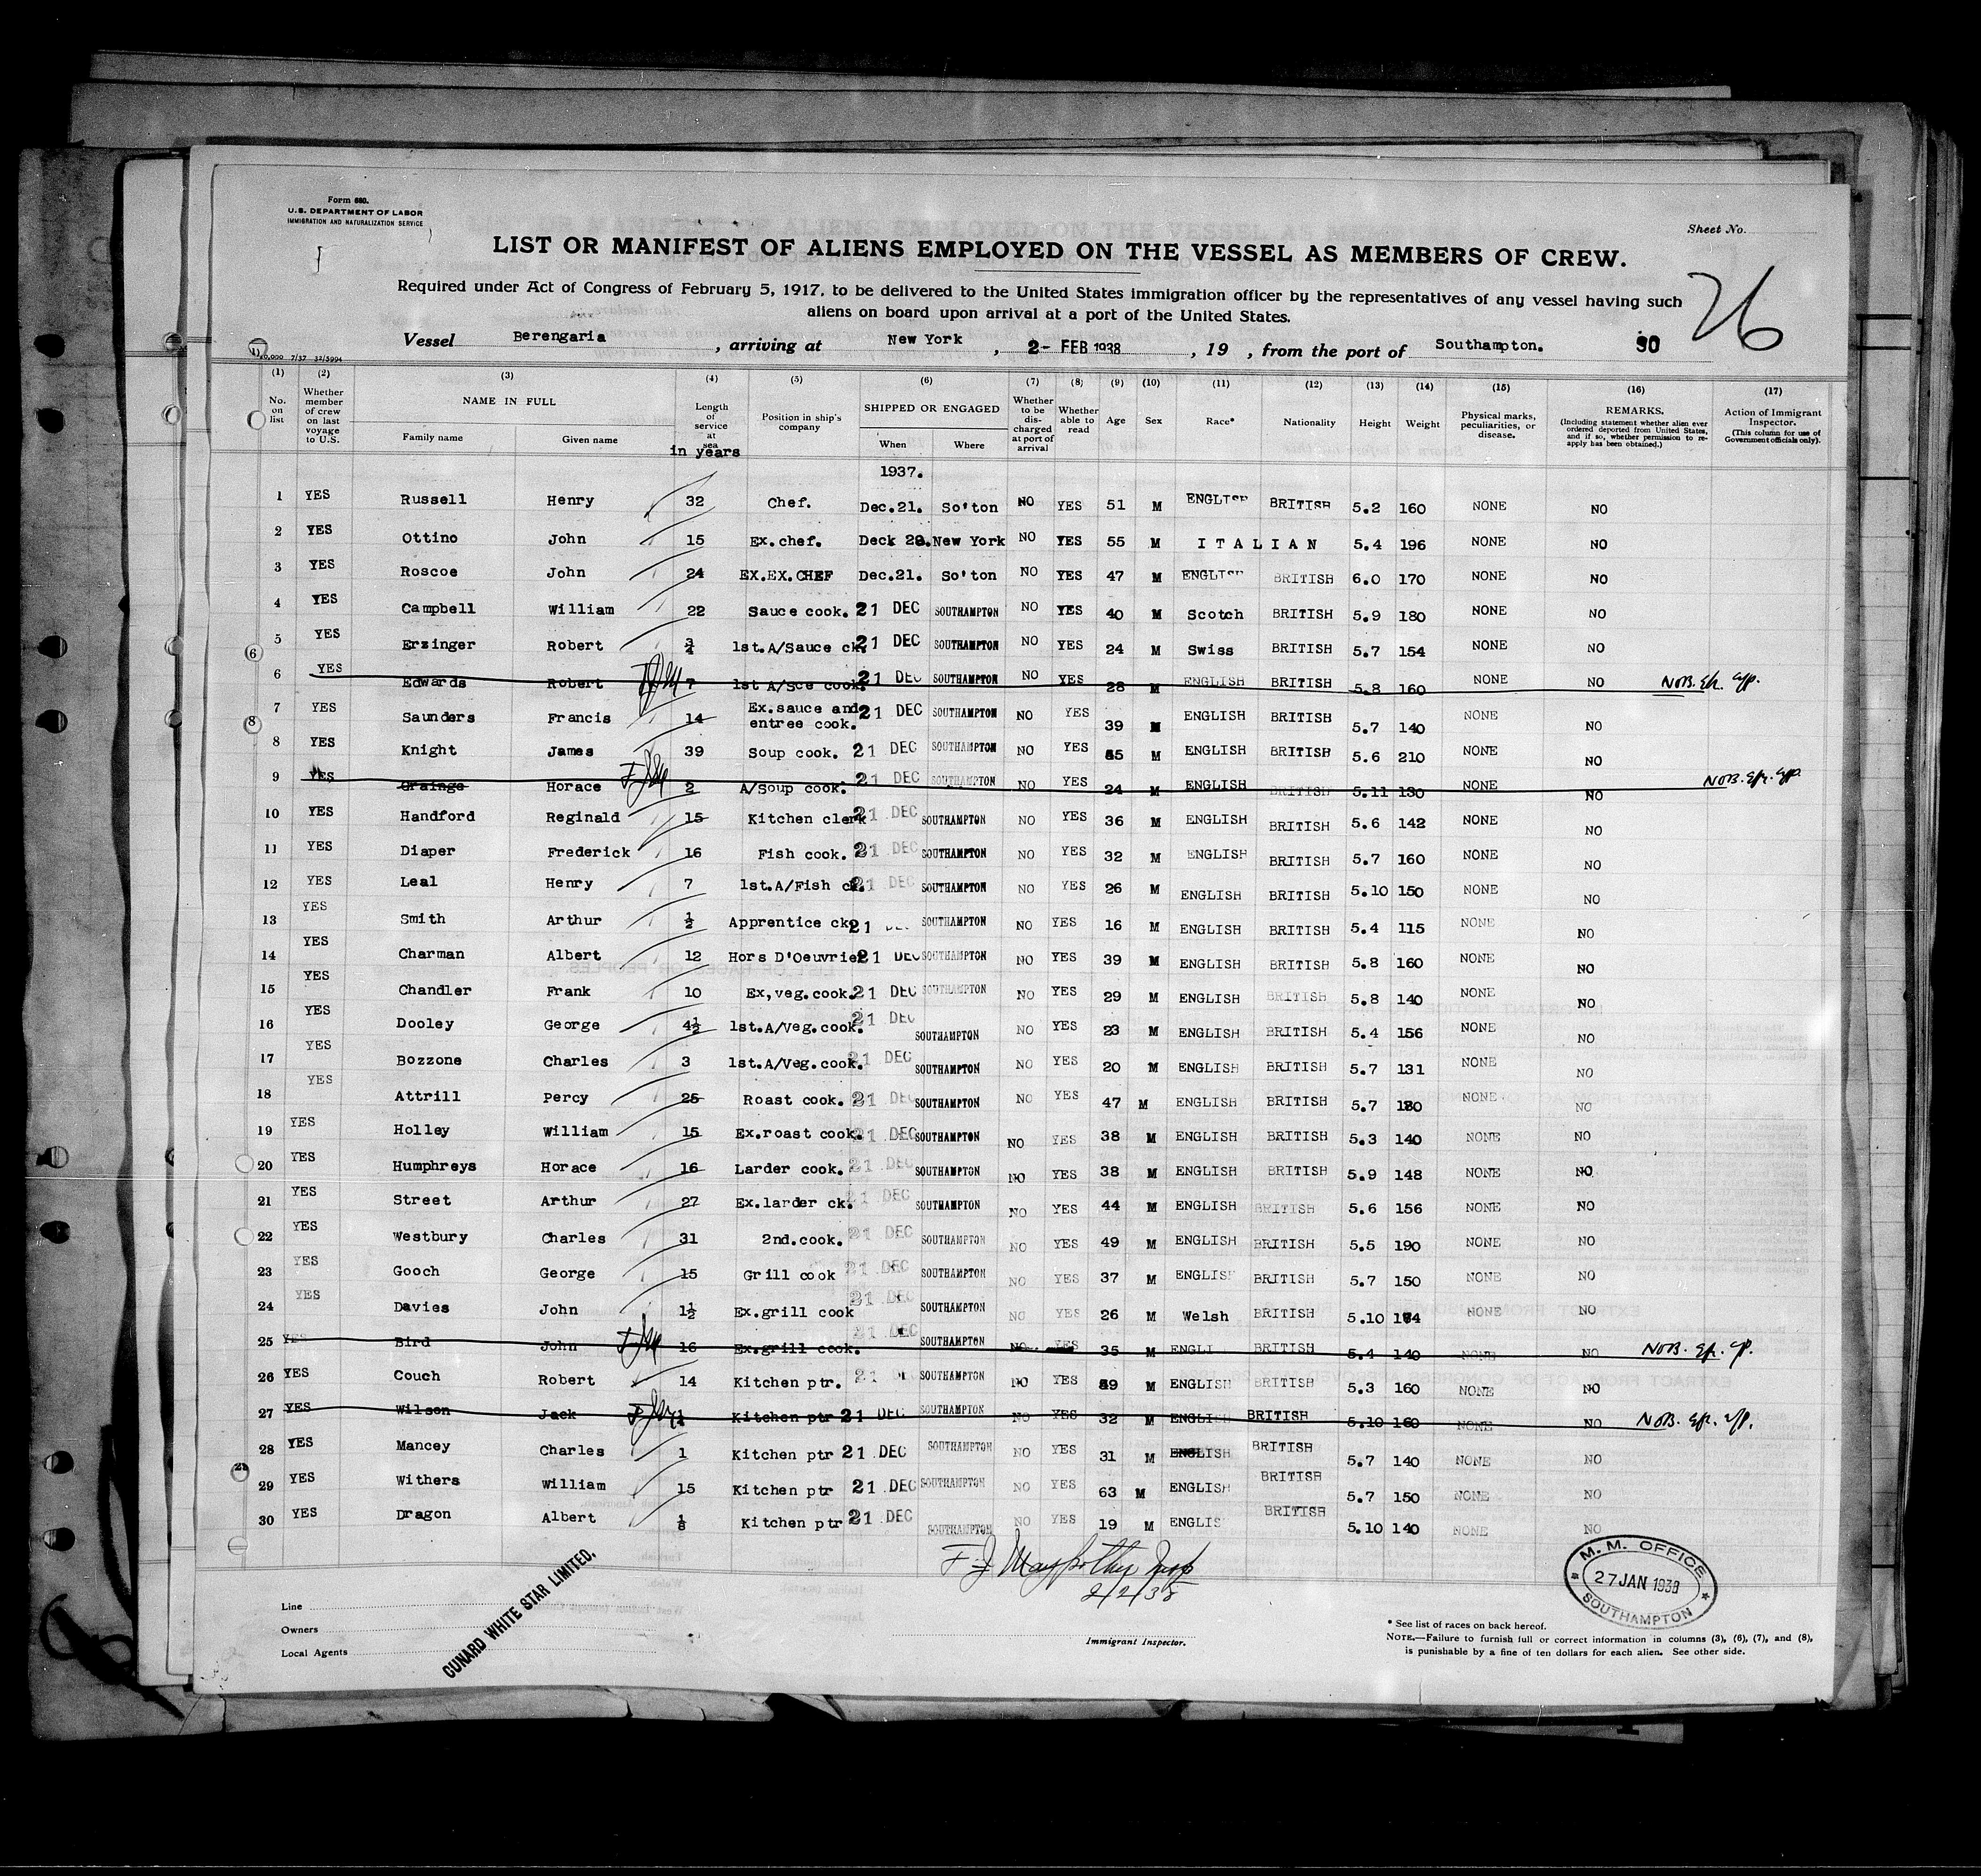 Form 680.
U.S. DEPARTMENT OF LABOR
IMMIGRATION AND NATURALIZATION SERVICE
Sheet No.
LIST OR MANIFEST OF ALIENS EMPLOYED ON THE VESSEL AS MEMBERS OF CREW.
26
Required under Act of Congress of February 5, 1917, to be delivered to the United States immigration officer by the representatives of any vessel having such
aliens on board upon arrival at a port of the United States.
Vessel Berengaria , arriving at New York , 2- FEB 1938 , 19 , from the port of Southampton. 30
(1) (2) (3) (4) (5) (6) (7) (8) (9) (10) (11) (12) (13) (14) (15) (16) (17)
No. on list Whether member of crew on last voyage to U.S. NAME IN FULL Family name Given name Length of service at sea in years Position in ship's company SHIPPED OR ENGAGED When Where Whether to be discharged at port of arrival Whether able to read Age Sex Race* Nationality Height Weight Physical marks, peculiarities, or disease. REMARKS. (Including statement whether alien ever ordered deported from United States, and if so, whether permission to reapply has been obtained.) Action of Immigrant Inspector. (This column for use of Government officials only).
1937.
1 YES Russell Henry 32 Chef. Dec.21. So'ton NO YES 51 M ENGLISH BRITISH 5.2 160 NONE NO
2 YES Ottino John 15 Ex.chef. Dec 28. New York NO YES 55 M ITALIAN 5.4 196 NONE NO
3 YES Roscoe John 24 EX.EX.CHEF Dec.21. So'ton NO YES 47 M ENGLISH BRITISH 6.0 170 NONE NO
4 YES Campbell William 22 Sauce cook. 21 DEC SOUTHAMPTON NO YES 40 M Scotch BRITISH 5.9 180 NONE NO
5 YES Erzinger Robert 3/4 1st.A/Sauce ck. 21 DEC SOUTHAMPTON NO YES 24 M Swiss BRITISH 5.7 154 NONE NO
6 YES Edwards Robert 7 1st A/Sce cook. 21 DEC SOUTHAMPTON NO YES 28 M ENGLISH BRITISH 5.8 160 NONE NO
7 YES Saunders Francis 14 Ex.sauce and entree cook. 21 DEC SOUTHAMPTON NO YES 39 M ENGLISH BRITISH 5.7 140 NONE NO
8 YES Knight James 39 Soup cook. 21 DEC SOUTHAMPTON NO YES 55 M ENGLISH BRITISH 5.6 210 NONE NO
9 YES Grainge Horace 2 A/Soup cook. 21 DEC SOUTHAMPTON NO YES 24 M ENGLISH BRITISH 5.11 130 NONE NO
10 YES Handford Reginald 15 Kitchen clerk 21 DEC SOUTHAMPTON NO YES 36 M ENGLISH BRITISH 5.6 142 NONE NO
11 YES Diaper Frederick 16 Fish cook. 21 DEC SOUTHAMPTON NO YES 32 M ENGLISH BRITISH 5.7 160 NONE NO
12 YES Leal Henry 7 1st.A/Fish ck. 21 DEC SOUTHAMPTON NO YES 26 M ENGLISH BRITISH 5.10 150 NONE NO
13 YES Smith Arthur 1/2 Apprentice ck. 21 DEC SOUTHAMPTON NO YES 16 M ENGLISH BRITISH 5.4 115 NONE NO
14 YES Charman Albert 12 Hors D'Oeuvrier 21 DEC SOUTHAMPTON NO YES 39 M ENGLISH BRITISH 5.8 160 NONE NO
15 YES Chandler Frank 10 Ex,veg.cook. 21 DEC SOUTHAMPTON NO YES 29 M ENGLISH BRITISH 5.8 140 NONE NO
16 YES Dooley George 4 1/2 1st.A/Veg.cook. 21 DEC SOUTHAMPTON NO YES 23 M ENGLISH BRITISH 5.4 156 NONE NO
17 YES Bozzone Charles 3 1st.A/Veg.cook. 21 DEC SOUTHAMPTON NO YES 20 M ENGLISH BRITISH 5.7 131 NONE NO
18 YES Attrill Percy 25 Roast cook. 21 DEC SOUTHAMPTON NO YES 47 M ENGLISH BRITISH 5.7 NONE NO
19 YES Holley William 15 Ex.roast cook. 21 DEC SOUTHAMPTON NO YES 38 M ENGLISH BRITISH 5.3 140 NONE NO
20 YES Humphreys Horace 16 Larder cook. 21 DEC SOUTHAMPTON NO YES 38 M ENGLISH BRITISH 5.9 148 NONE NO
21 YES Street Arthur 27 Ex.larder ck. 21 DEC SOUTHAMPTON NO YES 44 M ENGLISH BRITISH 5.6 156 NONE NO
22 YES Westbury Charles 31 2nd.cook. 21 DEC SOUTHAMPTON NO YES 49 M ENGLISH BRITISH 5.5 190 NONE NO
23 YES Gooch George 15 Grill cook 21 DEC SOUTHAMPTON NO YES 37 M ENGLISH BRITISH 5.7 150 NONE NO
24 YES Davies John 1 1/2 Ex.grill cook 21 DEC SOUTHAMPTON NO YES 26 M Welsh BRITISH 5.10 NONE NO
25 YES Bird John 16 Ex.grill cook. 21 DEC SOUTHAMPTON NO YES 35 M ENGLI BRITISH 5.4 140 NONE NO
26 YES Couch Robert 14 Kitchen ptr. 21 DEC SOUTHAMPTON NO YES M ENGLISH BRITISH 5.3 160 NONE NO
27 YES Wilson Jack Kitchen ptr 21 DEC SOUTHAMPTON NO YES 32 M ENGLISH BRITISH 5.10 160 NONE NO
28 YES Mancey Charles 1 Kitchen ptr 21 DEC SOUTHAMPTON NO YES 31 M ENGLISH BRITISH 5.7 140 NONE NO
29 YES Withers William 15 Kitchen ptr 21 DEC SOUTHAMPTON NO YES 63 M ENGLISH BRITISH 5.7 150 NONE NO
30 YES Dragon Albert 1/8 Kitchen ptr 21 DEC SOUTHAMPTON NO YES 19 M ENGLIS BRITISH 5.10 140 NONE NO
2/2/38
M. M. OFFICE
27 JAN 1938
SOUTHAMPTON
Line
Owners
Local Agents
CUNARD WHITE STAR LIMITED.
Immigrant Inspector.
* See list of races on back hereof.
NOTE.—Failure to furnish full or correct information in columns (3), (6), (7), and (8),
is punishable by a fine of ten dollars for each alien. See other side.